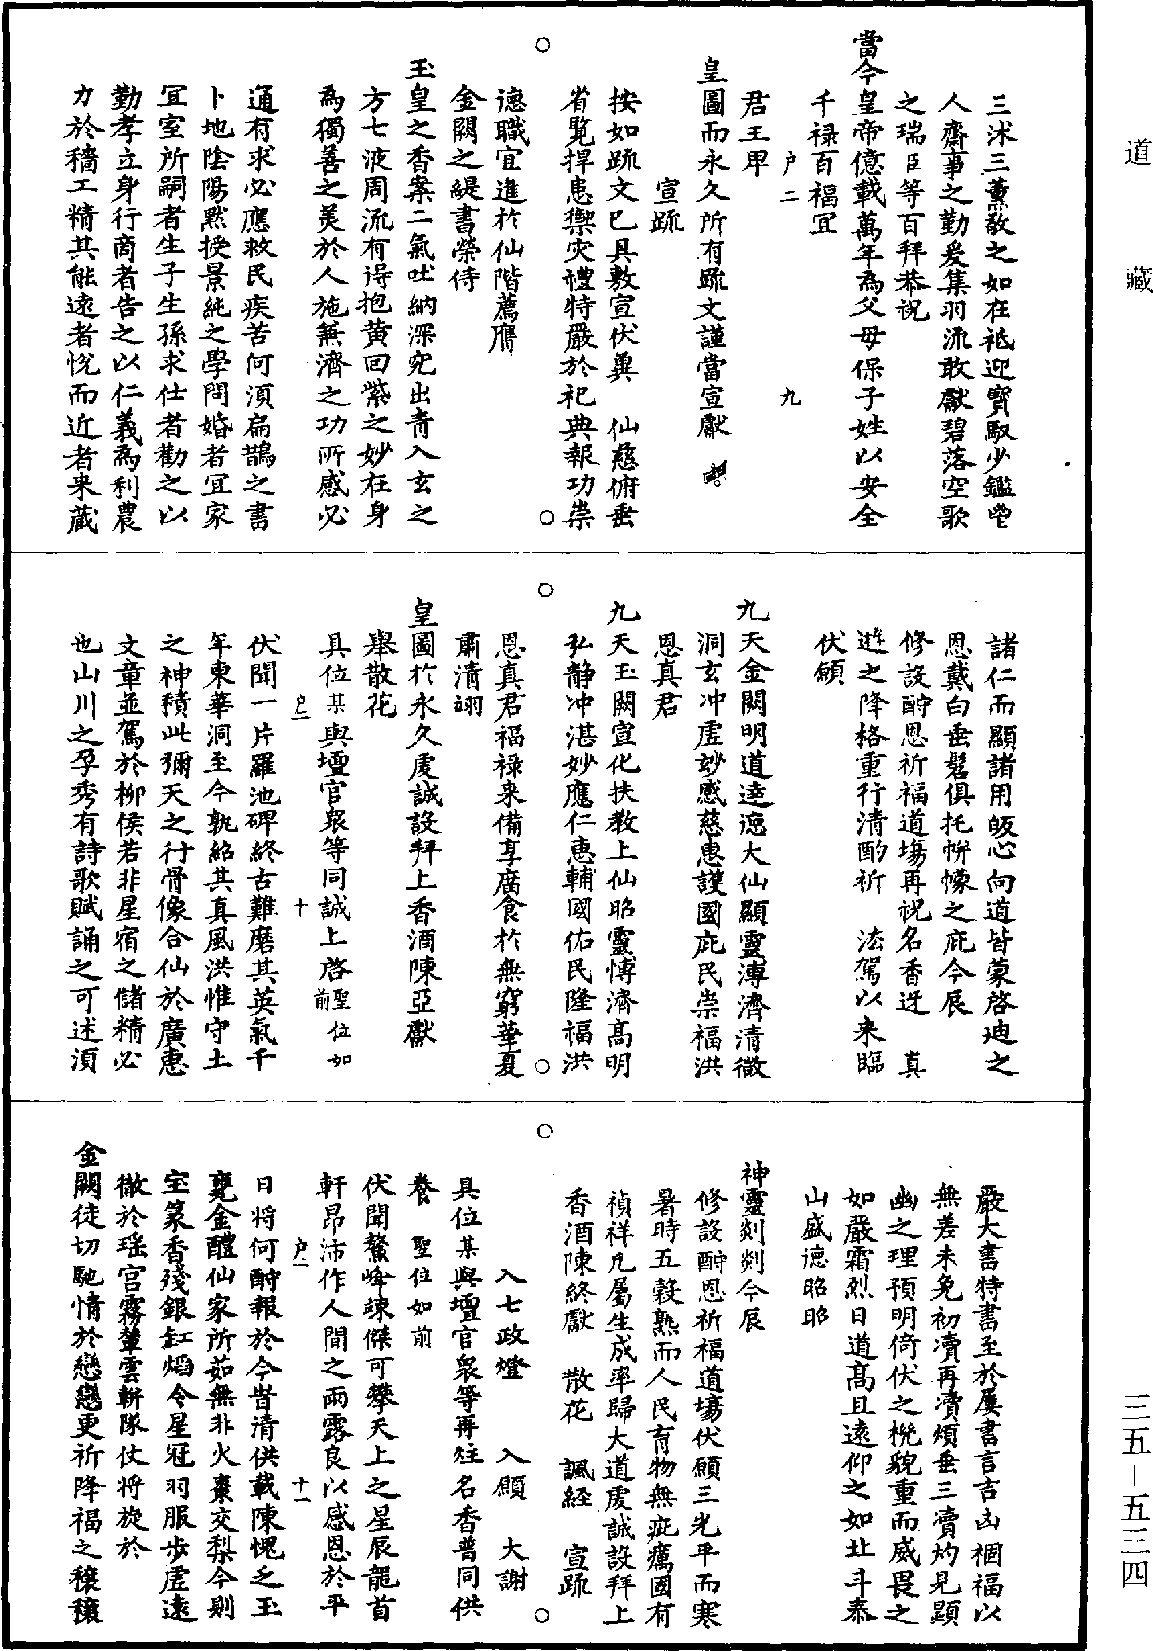 道藏
三五-五三四
三沐三薰敬之如在祗迎寶馭少鑑
人齋事之勤爰集羽流敢獻碧落空歌
之瑞臣等百拜恭祝
當今皇帝億載萬年為父母保子姓以安全
千祿百福宜
戶二 九
君王甲
皇圖而永久所有䟽文謹當宣獻
宣䟽
按如䟽文已具敷宣伏冀 仙慈俯垂
省覧捍患禦灾禮特嚴於祀典報功崇
德職宜進於仙階薦膺
金闕之緹書榮侍
玉皇之香案二氣吐納深究出青入玄之
方七液周流有得抱黄回紫之妙在身
為獨善之美於人施兼濟之功所感必
通有求必應救民疾苦何須扁鵲之書
卜地陰陽黙授景純之學問婚者宜家
宜室所嗣者生子生孫求仕者勸之以
勤孝立身行商者告之以仁義為利農
力於穡工精其能遠者恱而近者来蔵
諸仁而顯諸用皈心向道皆蒙啓迪之
恩戴白垂髫俱托帡幪之庇今辰
修設酧恩祈福道塲再祝名香迓 真
遊之降格重行清酌祈 法駕以来臨
伏願
九天金闕明道逹德大仙顯靈溥濟清微
洞玄冲虛玅感慈惠護國庇民崇福洪
恩真君
九天玉闕宣化扶教上仙昭靈愽濟髙明
弘静冲湛妙應仁惠輔國佑民隆福洪
恩真君福禄来備享廣食於無窮華夏
肅清翊
皇圖於永久虔誠設拜上香酒陳亞獻
舉散花
具位某與壇官衆等同誠上啓聖位如前
戶二 十
伏聞一片羅池碑終古難磨其英氣千
年東華洞至今孰紹其真風洪惟守土
之神積此彌天之行骨像合仙於廣惠
文章並駕於柳侯若非星宿之儲精必
也山川之孕秀有詩歌賦誦之可述湏
嚴大書特書至於屢書言吉凶禍福以
無差未免初瀆再瀆煩垂三瀆灼見顯
幽之理預明倚伏之機貌重而威畏之
如嚴霜烈日道髙且遠仰之如北斗泰
山盛德昭昭
神靈剡剡今辰
修設酧恩祈福道塲伏願三光平而寒
暑時五穀熟而人民育物無疵癘國有
禎祥凡屬生成率歸大道虔誠設拜上
香酒陳終獻 散花 諷經 宣䟽
入七政燈 入願 大謝
具位某與壇官衆等再炷名香普同供
養 聖位如前
伏聞鰲峰竦傑可攀天上之星辰龍首
軒昂沛作人間之雨露良以感恩於平
戶二 十一
日將何酧報於今昔清供載陳愧乏玉
甕金醴仙家所茹無非火棗交梨今則
宝篆香殘銀缸熖令星冠羽服步虛遠
徹於瑶宫霧輦雲輧隊仗将旋於
金闕徒切馳情於戀戀更祈降福之穰穰